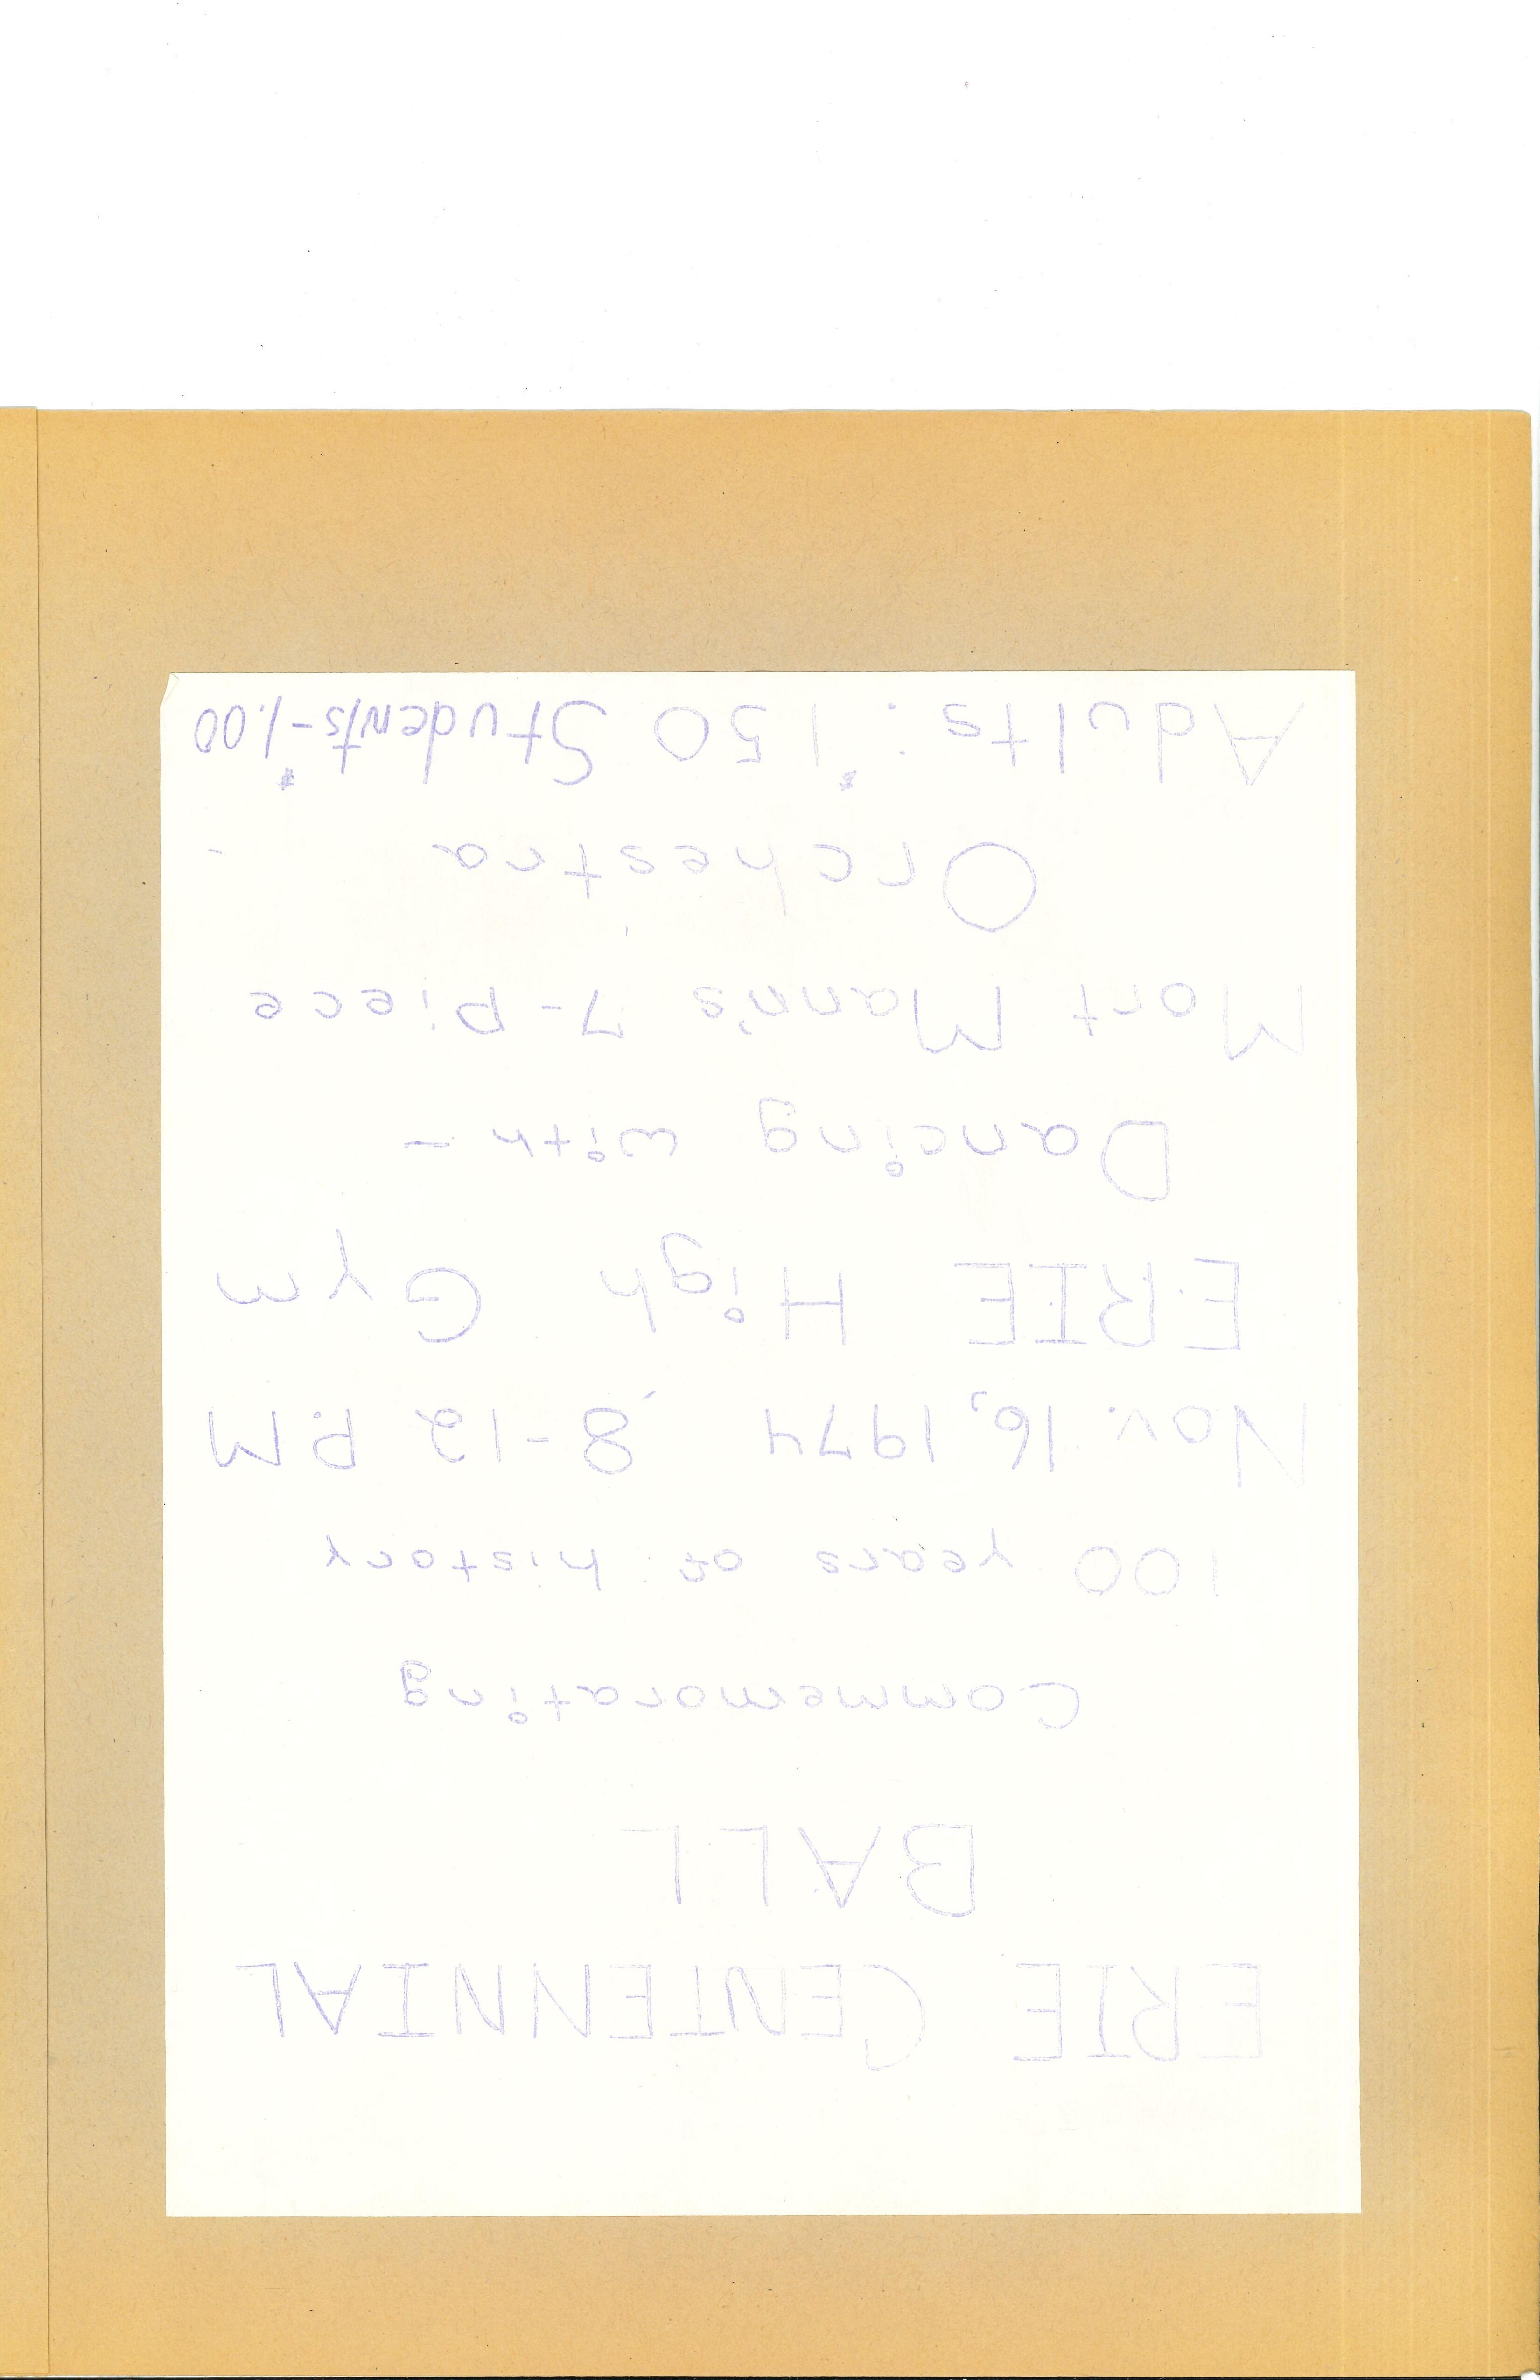 ERIE CENTENNIAL
BALL
Commemorating
100 years of history
Nov. 16, 1974 8-12 P.M
ERIE High Gym
Dancing with -
Mort Mann's 7-Piece
Orchestra
Adults: 1.50 Students-1.00